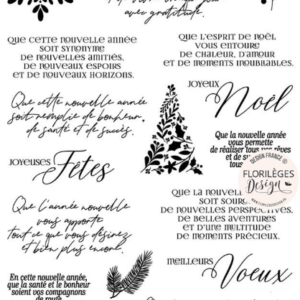 avec gratitude.
QUE CETTE NOUVELLE ANNÉE
SOIT SYNONYME
DE NOUVELLES AMITIÉS,
DE NOUVEAUX ESPOIRS
ET DE NOUVEAUX HORIZONS.
QUE L'ESPRIT DE NOËL
VOUS ENTOURE
DE CHALEUR, D'AMOUR
ET DE MOMENTS INOUBLIABLES.
Que cette nouvelle année
soit remplie de bonheur,
de santé et de succès.
JOYEUX
Noël
JOYEUSES
Fêtes
Que la nouvelle année
vous permette
de réaliser tous vos rêves
et de
DESIGN FRANCE
FLORILÈGES
Design
Que l'année nouvelle
vous apporte
tout ce que vous désirez
et bien plus encore.
QUE LA NOUVELLE
SOIT
DE NOUVELLES PERSPECTIVES,
DE BELLES AVENTURES
ET D'UNE MULTITUDE
DE MOMENTS PRÉCIEUX.
En cette nouvelle année,
que la santé et le bonheur
soient vos compagnons
de route
MEILLEURS
Voeux